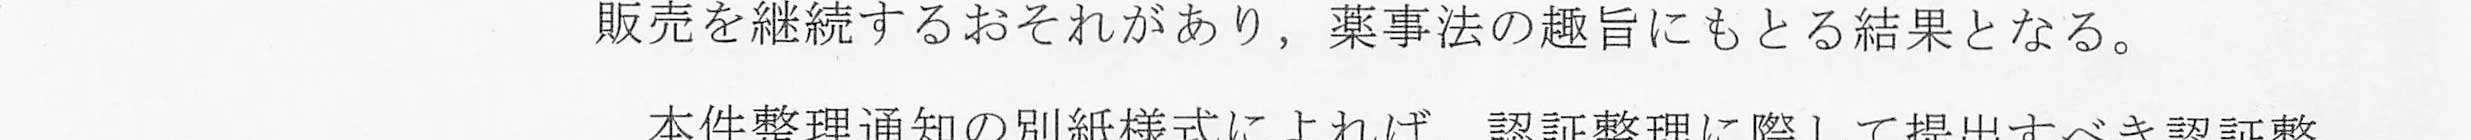 販売を継続するおそれがあり，薬事法の趣旨にもとる結果となる。
本件整理通知の別紙様式によれば，認証整理に際して提出すべき認証整